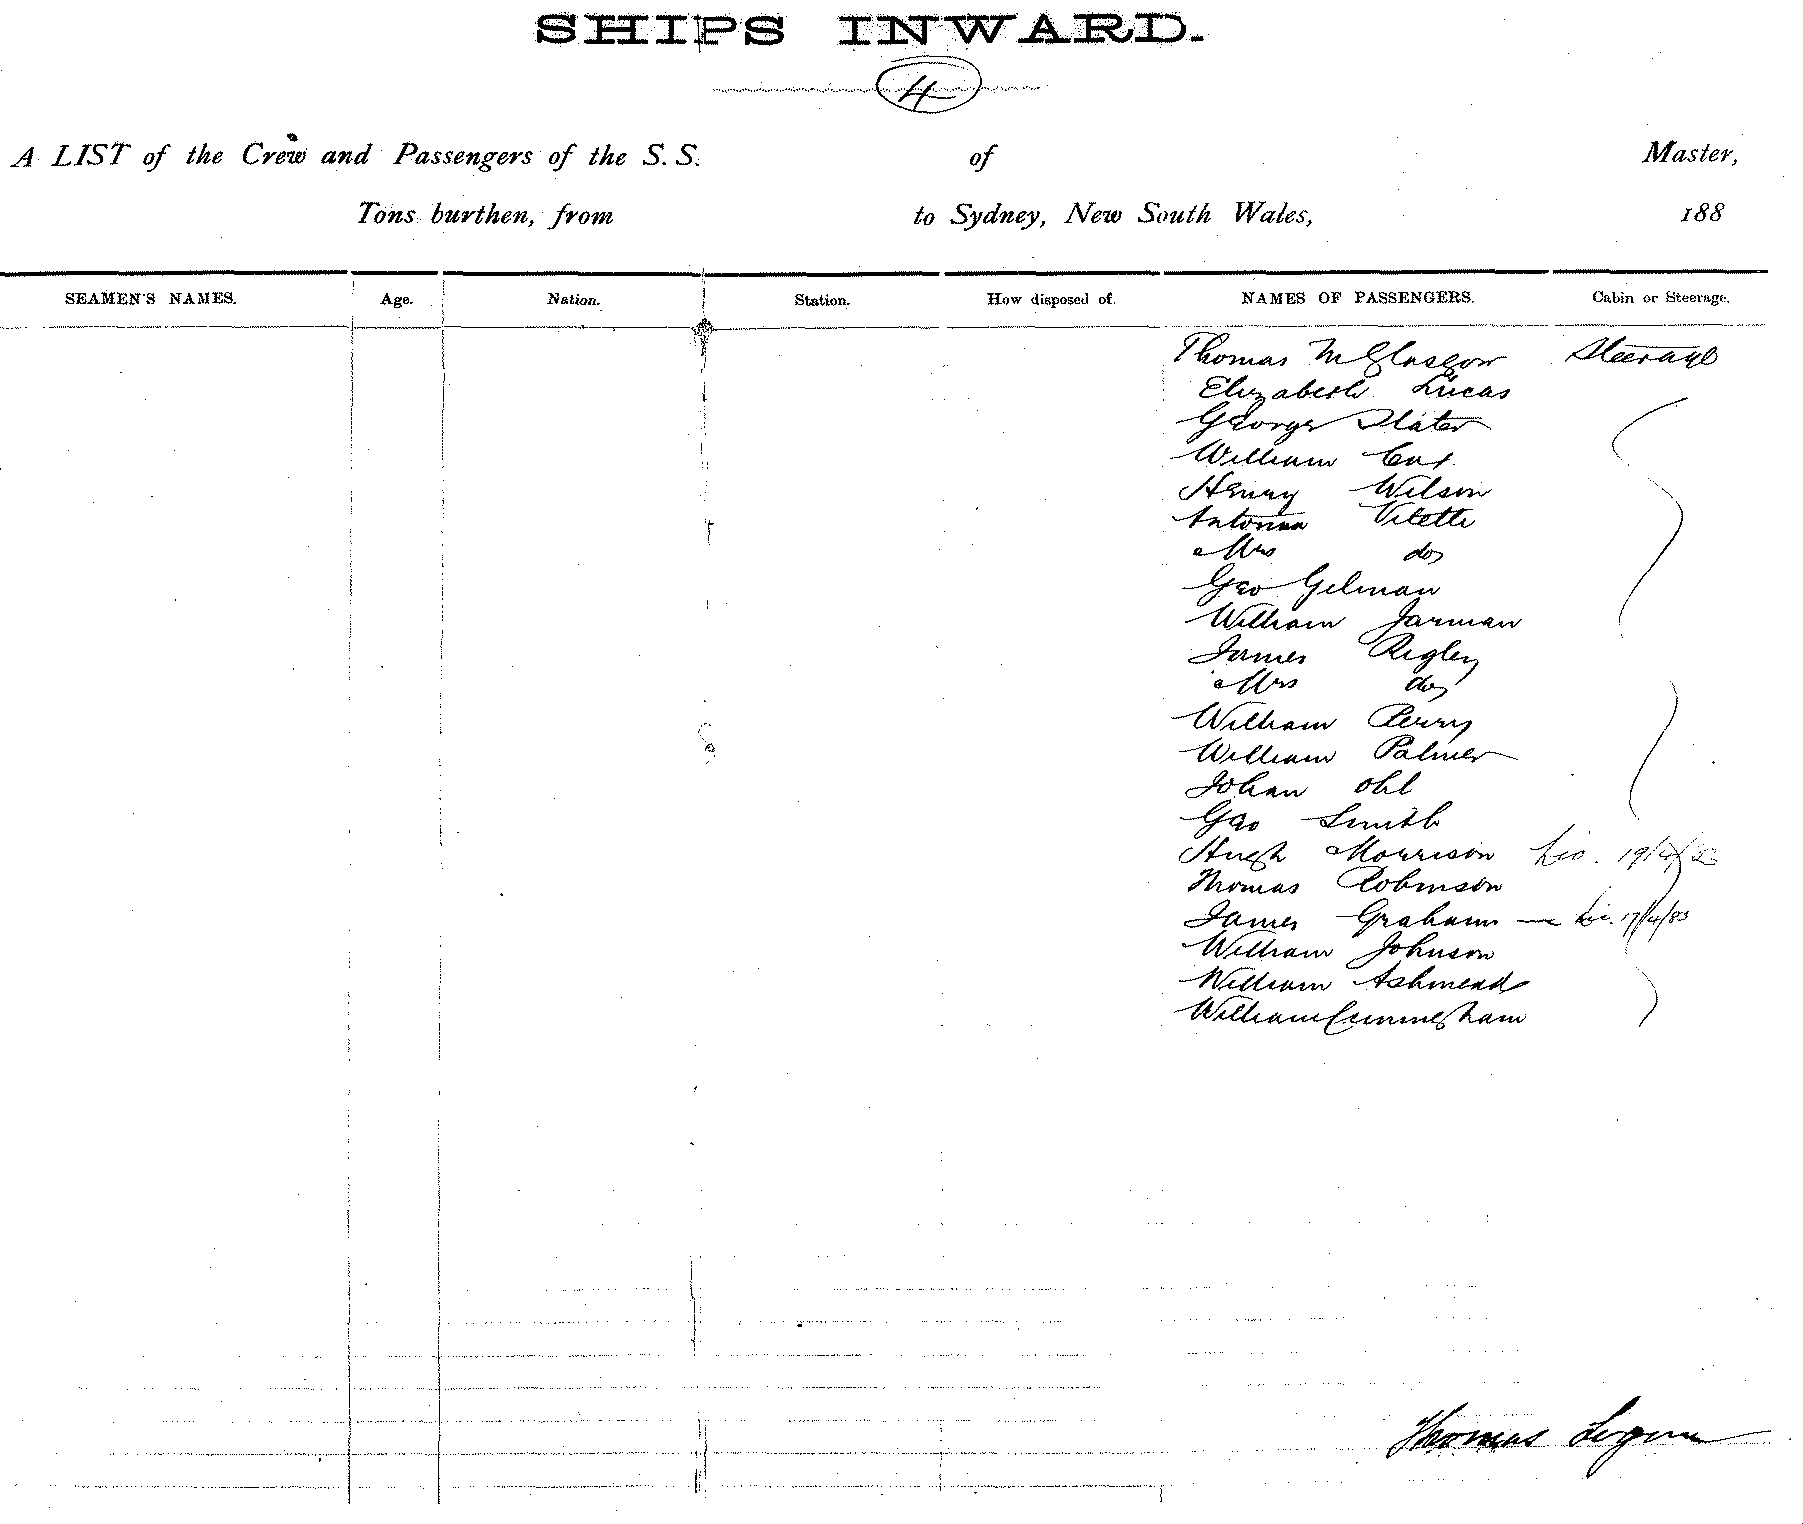 SHIPS INWARD.
4
A LIST of the Crew and Passengers of the S. S. of Master,
Tons burthen, from to Sydney, New South Wales, 188
SEAMEN'S NAMES. Age. Nation. Station. How disposed of. NAMES OF PASSENGERS. Cabin or Steerage.
Thomas McGlasgow Steerage
Elizabeth Lucas
George Slater
William Cox
Henry Wilson
Vitette
Mrs do
Geo Gilman
William Jarman
James Rigley
Mrs do
William Perry
William Palmer
Johan Ohl
Geo Smith
Hugh Morrison Lic. 19/4/83
Thomas Robinson
James Graham — Lic. 17/4/83
William Johnson
William Ashmead
William Cunningham
Thomas